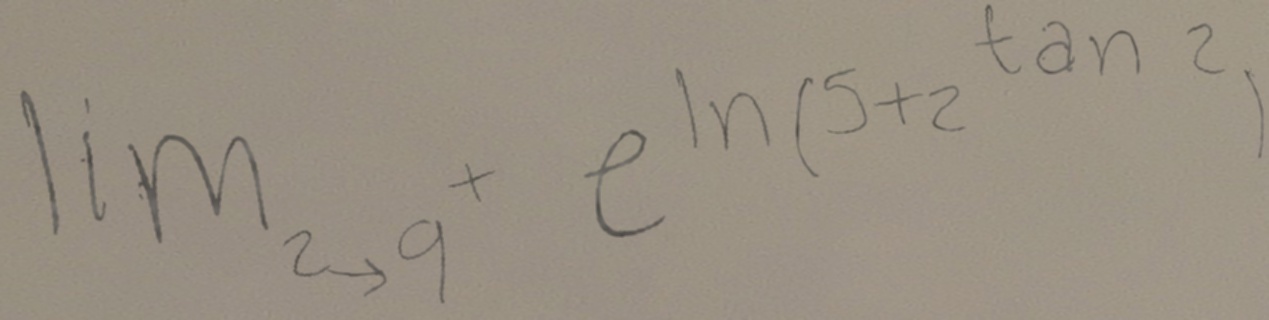 lim_{z→9^+} e^{ln(5+z^{tan z})}